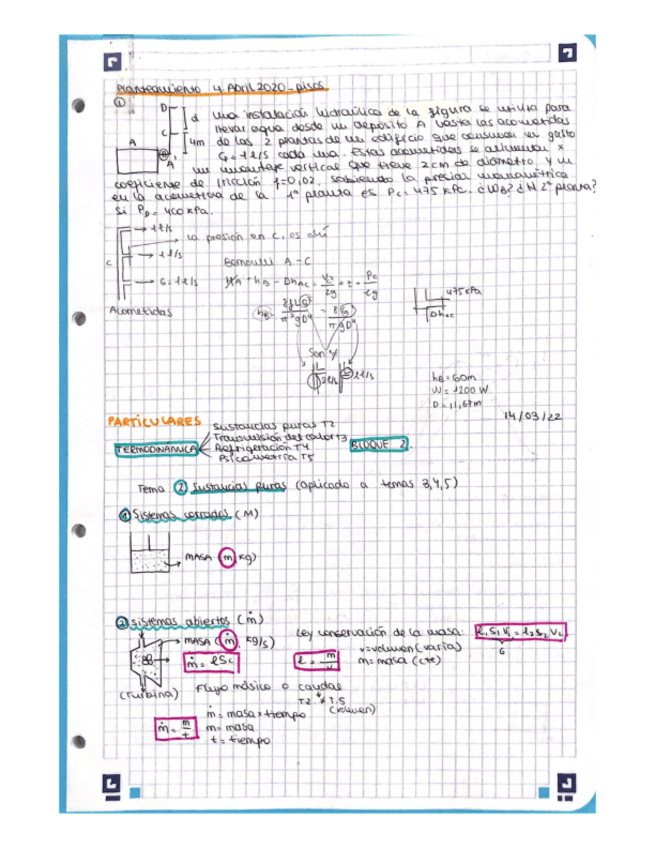 Planteamiento 4. Abril 2020 - pisos
① D d Una instalación hidráulica de la figura se utiliza para
llevar agua desde un depósito A hasta las acometidas
C 4m de las 2 plantas de un edificio que consumen un gasto
A A' G = 1 l/s cada una. Estas acometidas se alimentan x
un montaje vertical que tiene 2 cm de diámetro y un
coeficiente de fricción f=0,02. sabiendo la presión manométrica
en la acometida de la 1ª planta es Pc = 475 kPa. ¿WB? ¿N 2ª planta?
Si PD = 400 kPa.
→ 1 l/s
la presión en C, es ahí
→ 1 l/s
C → G = 1 l/s
Acometidas
Bernoulli A - C
HA + hB - DhAC = V²/2g + z + Pc/ρg
hB - 8fLG²/π²gD⁵ = 8G²/π²gD⁴
475 kPa
DhAC
Son ≠
2 l/s 1 l/s
hB = 60m
W = 1200 W
D = 11,67m
PARTICULARES 14/03/22
Sustancias puras T2
Transmisión del calor T3
TERMODINÁMICA Refrigeración T4 BLOQUE 2.
Psicometría T5
Tema ② Sustancias puras (aplicado a temas 3,4,5)
① Sistemas cerrados (M)
MASA (m, Kg)
② Sistemas abiertos (ṁ)
MASA (ṁ, Kg/s)
ṁ = ρSc
(Turbina)
Ley conservación de la masa: ρ₁S₁V₁ = ρ₂S₂V₂
G
ρ = m/v v=volumen (varía)
m= masa (cte)
Flujo másico o caudal
T2. ≠ T.5
(volumen)
ṁ = m/t ṁ = masa × tiempo
m= masa
t = tiempo